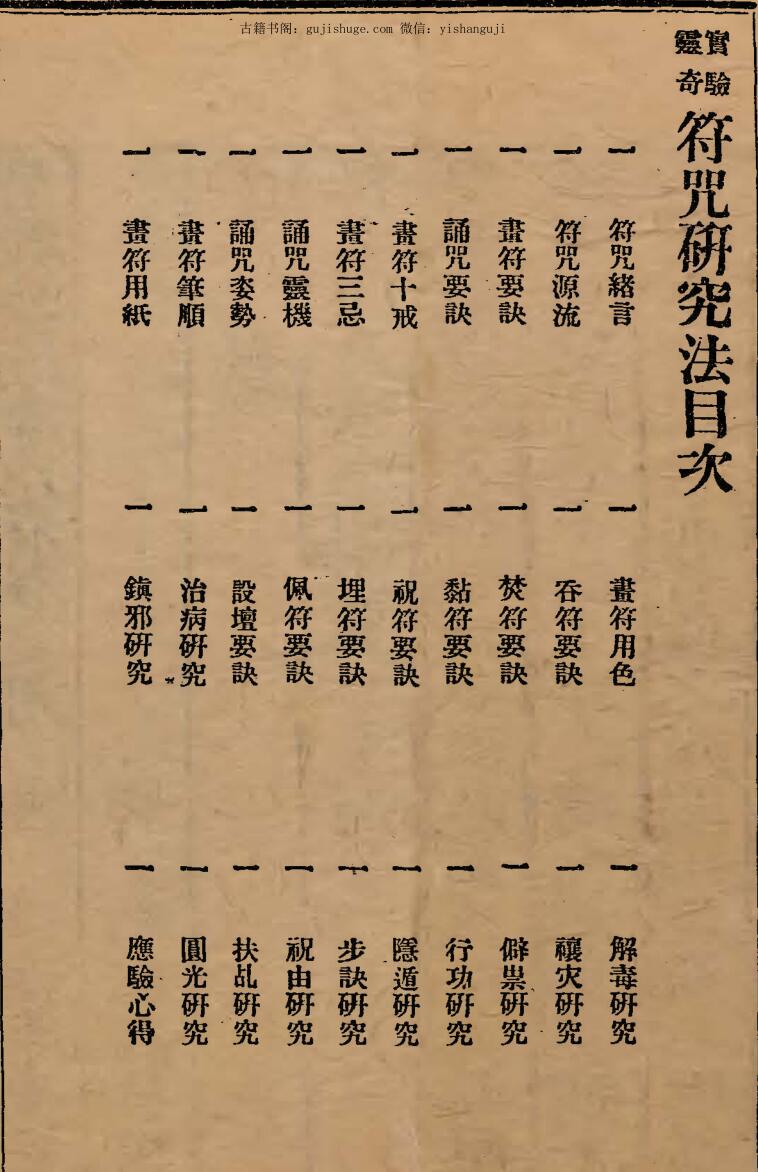 古籍书阁：gujishuge.com 微信：yishanguji
實驗
靈奇
符咒研究法目次
一 符咒緒言
一 符咒源流
一 畫符要訣
一 誦咒要訣
一 畫符十戒
一 畫符三忌
一 誦咒靈機
一 誦咒姿勢
一 畫符筆順
一 畫符用紙
一 畫符用色
一 吞符要訣
一 焚符要訣
一 黏符要訣
一 祝符要訣
一 埋符要訣
一 佩符要訣
一 設壇要訣
一 治病研究
一 鎮邪研究
一 解毒研究
一 禳灾研究
一 僻祟研究
一 行功研究
一 隱遁研究
一 步訣研究
一 祝由研究
一 扶乩研究
一 圓光研究
一 應驗心得